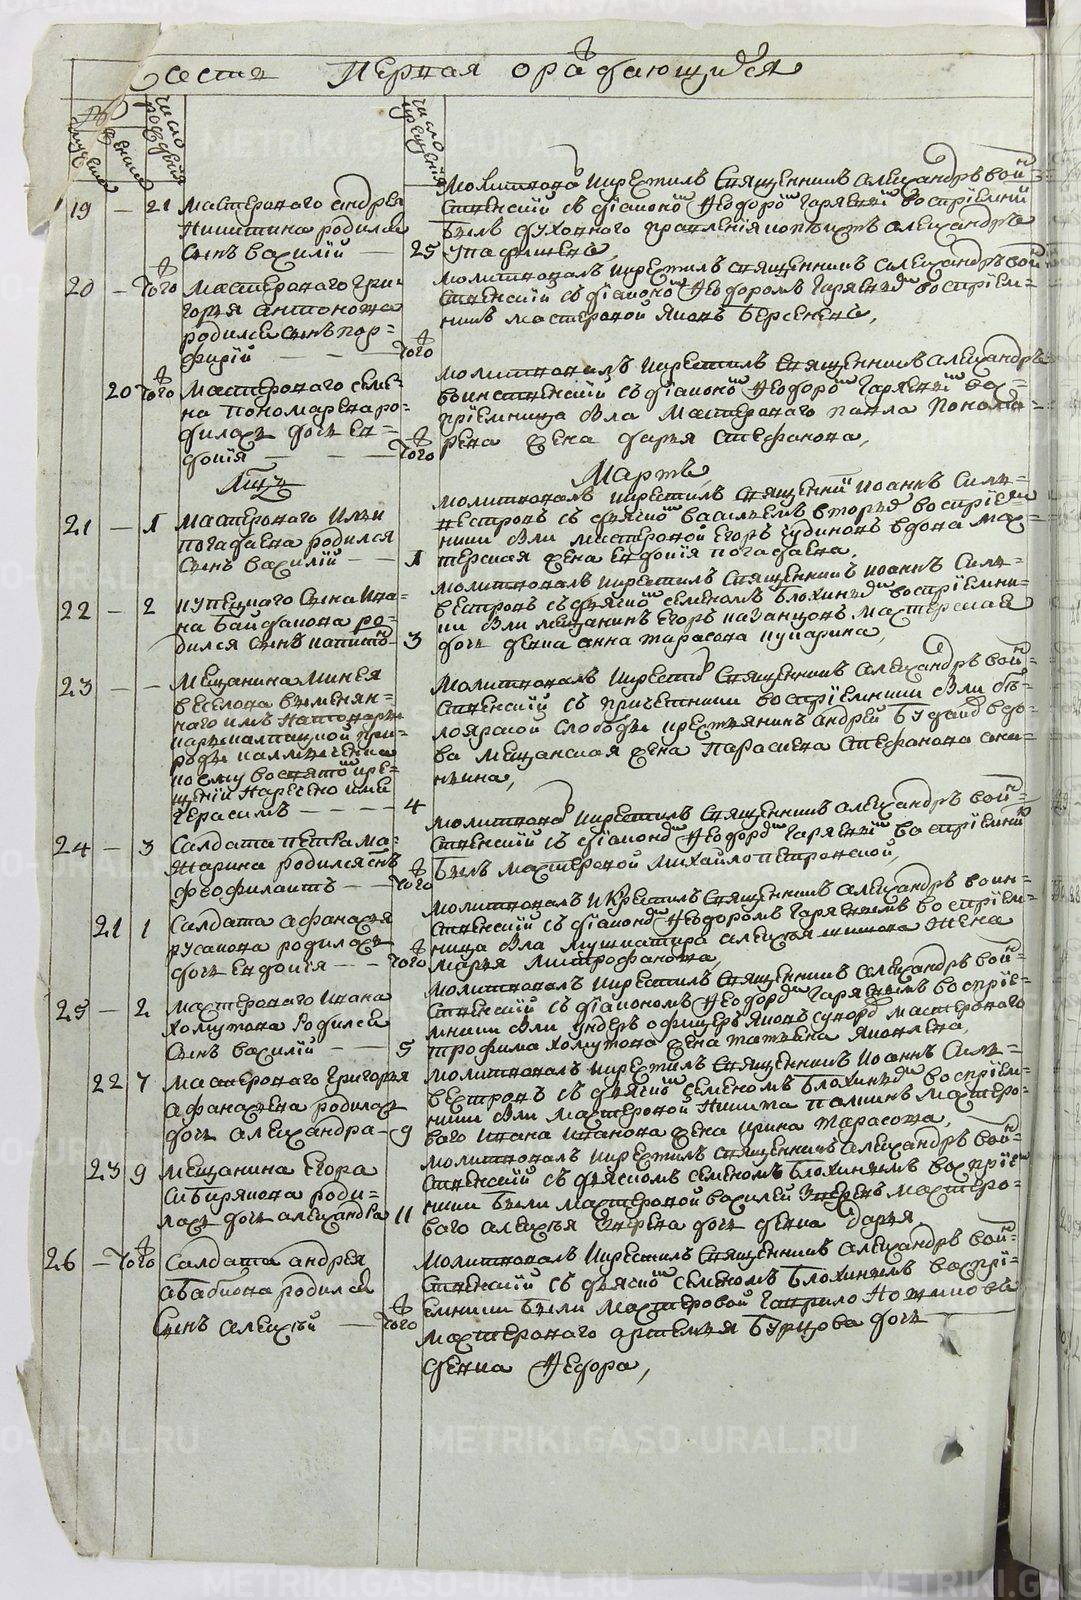 Часть Первая о раждающихся
число рождения
число крещения
19 — 21 мастероваго андрея
Никитина родился
сынъ василий — 25
молитвовал и крестилъ священникъ александръ воин=
ственский съ диакономъ Феодоромъ гаряевым восприемник
былъ духовного правления копиистъ александръ
20 — того мастероваго гри=
горья антонова
родился сынъ пор=
фирий — — — того
молитвовалъ и крестилъ священникъ александръ воин
ственский съ диакономъ Феодоромъ гаряевым восприем=
никъ мастеровой яковъ берсеневъ,
20 того мастероваго семе=
на пономарева ро=
дилась дочь ев=
докия — — — того
молитвовалъ и крестилъ священникъ александръ
воинственский съ диакономъ Феодоромъ гаряевым вос=
приемница была мастероваго павла понома=
рева жена дарья стефанова,
Мартъ
21 — 1 мастероваго ильи
погадаева родился
сынъ василий — 1
молитвовалъ и крестилъ священник иоаннъ силь=
вестровъ съ дьячкомъ васильемъ вторым восприем
ники были мастеровой егоръ чудиновъ вдова мас=
терская жена евдокия погадаева,
22 — 2 купецкаго сына ива=
на байдакова ро=
дился сынъ капитонъ — 3
молитвовалъ и крестилъ священникъ иоаннъ силь=
вестровъ съ дьячкомъ семеномъ блохиным восприемни=
ки были мещанинъ егоръ казанцовъ мастерская
дочь девка анна тарасова
23 — — мещанина
веселова
герасимъ — — — 4
молитвовалъ и крестил священникъ александръ воин=
ственский съ причетники восприемники были бе=
лоярской слободы крестьянинъ андрей
ва мещанская жена парасковья стефанова
24 — 3 салдата петра ма=
карина родился сынъ
феофилактъ — — того
молитвовал и крестилъ священникъ александръ воин=
ственский съ диаконом Феодором гаряевым восприемник
былъ мастеровой михайло петровской,
21 1 салдата афанасья
русакова родилась
дочь евдокия — — того
молитвовалъ и крестилъ священникъ александръ воин=
ственский съ диаконом Феодоромъ гаряевымъ восприем=
ница была алексея жена
марья митрофанова,
25 — 2 мастероваго ивана
хомутова родился
сынъ василий — — 5
молитвовалъ и крестилъ священникъ александръ воин=
ственский съ диакономъ Феодором гаряевымъ восприе=
мники были ундеръ офицеръ яковъ мастероваго
трофима хомутова жена татьяна яковлева,
22 7 мастероваго григорья
афанасьева родилась
дочь александра — 9
молитвовалъ и крестилъ священникъ иоаннъ силь=
вестровъ съ дьячком семеномъ блохиным восприем=
ники были мастеровой никита мастеро=
ваго ивана иванова жена ирина тарасова,
23 9 мещанина егора
сибирякова роди=
лась дочь александра 11
молитвовалъ и крестилъ священникъ александръ воин=
ственский съ дьячкомъ семеномъ блохинымъ восприем
ники были мастеровой василей зверевъ мастеро=
ваго алексея зверева дочь девка дарья
26 — того салдата андрея
бабикова родился
сынъ алексей — того
молитвовалъ и крестилъ священникъ александръ воин=
ственский съ дьячкомъ семеномъ блохинымъ воспри=
емники были мастеровой гаврило
мастероваго артемья бурцова дочь
девка Федора,
METRIKI.GASO-URAL.RU